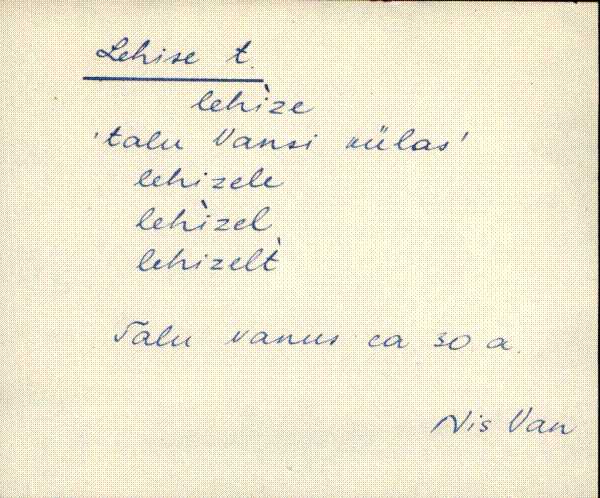 Lehise t.
lehìze
'talu Vansi külas'
lehizele
lehìzel
lehizelt̀
Talu vanus ca 30 a.
Nis Van